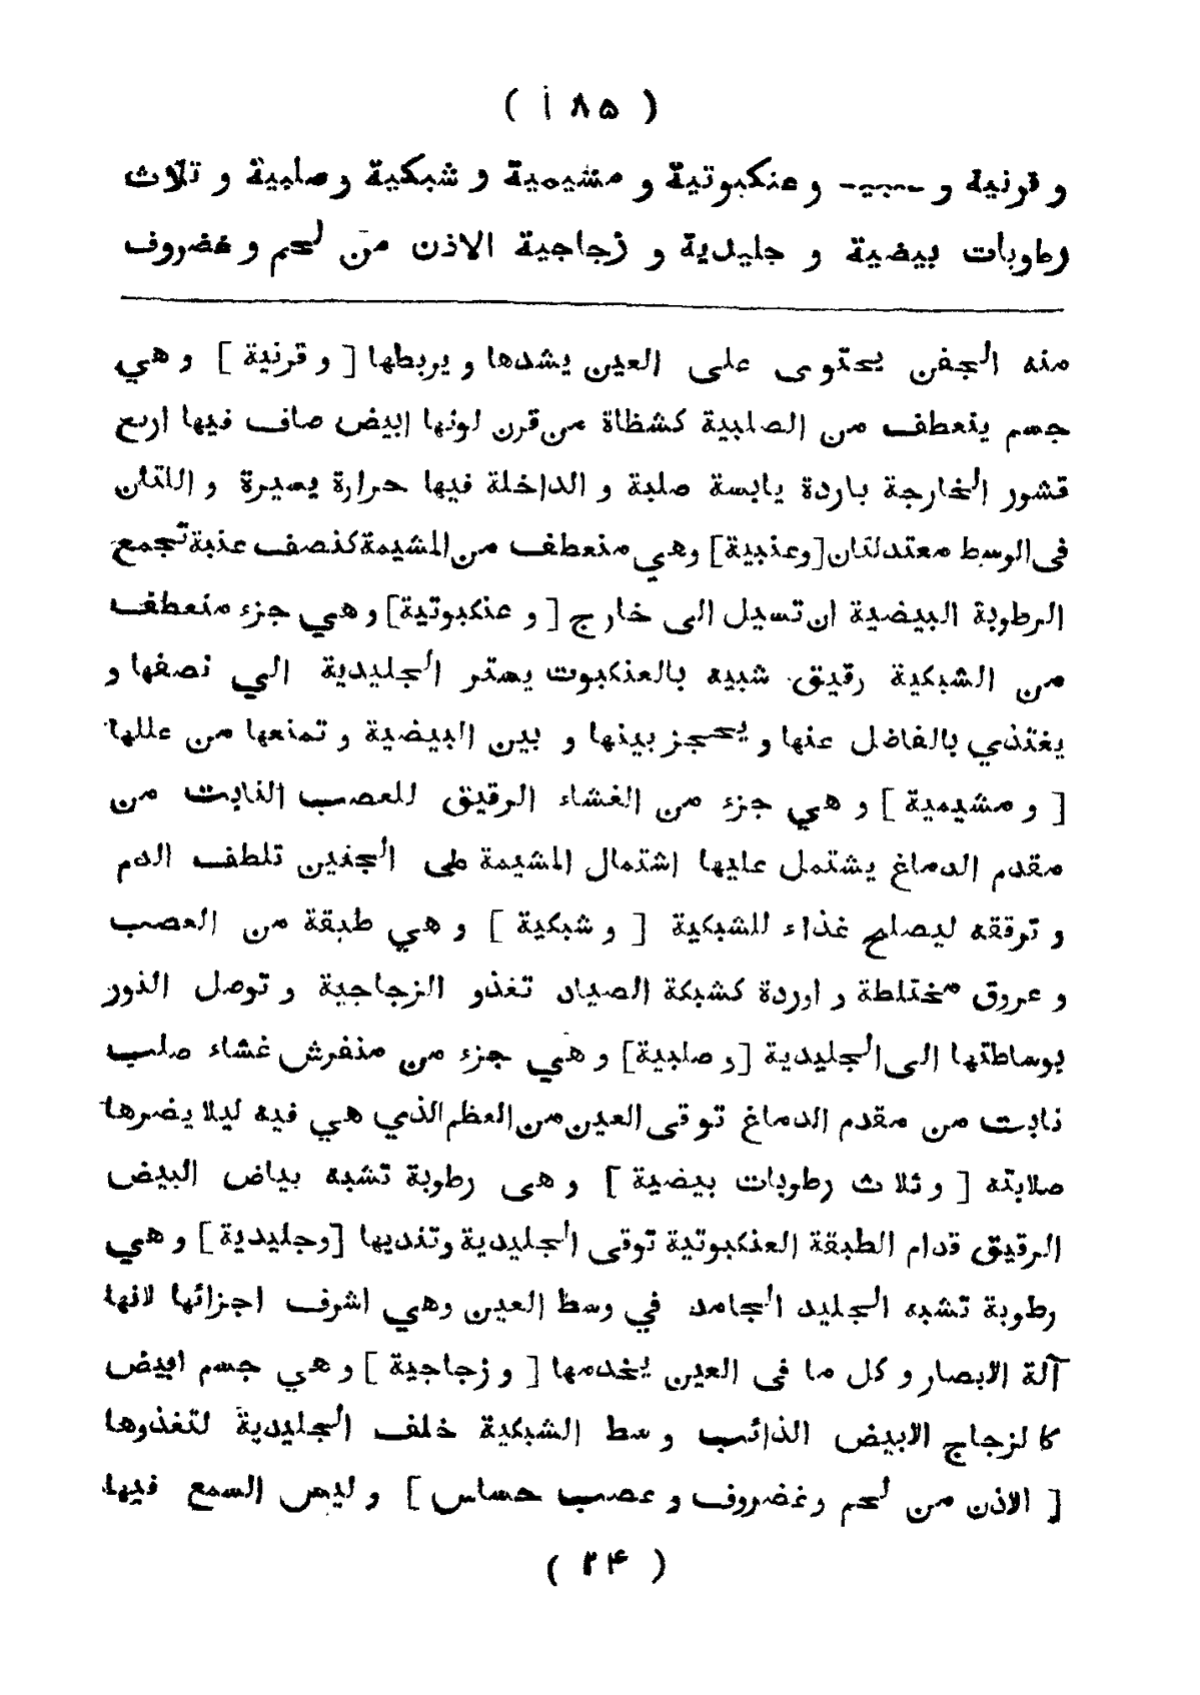 ( ۱۸۵ )
و قرنية و و عنكبوتية و مشيمية و شبكية و صلبية و ثلاث
رطوبات بيضية و جليدية و زجاجية الاذن من لحم و غضروف
منه الجفن يحتوى على العين يشدها و يربطها [ و قرنية ] و هي
جسم ينعطف من الصلبية كشظاة من قرن لونها ابيض صاف فيها اربع
قشور الخارجة باردة يابسة صلبة و الداخلة فيها حرارة يسيرة و اللتان
فى الوسط معتدلتان [وعنبية] وهي منعطف من المشيمة كنصف عنبة تجمع
الرطوبة البيضية ان تسيل الى خارج [ و عنكبوتية] و هي جزء منعطف
من الشبكية رقيق شبيه بالعنكبوت يستر الجليدية الي نصفها و
يغتذي بالفاضل عنها و يحجز بينها و بين البيضية و تمنعها من عللها
[ و مشيمية ] و هي جزء من الغشاء الرقيق للعصب النابت من
مقدم الدماغ يشتمل عليها اشتمال المشيمة على الجنين تلطف الدم
و ترققه ليصلح غذاء للشبكية [ و شبكية ] و هي طبقة من العصب
و عروق مختلطة و اوردة كشبكة الصياد تغذو الزجاجية و توصل النور
بوساطتها الى الجليدية [و صلبية] و هي جزء من منفرش غشاء صلب
نابت من مقدم الدماغ توقى العين من العظم الذي هي فيه ليلا يضرها
صلابته [ و ثلاث رطوبات بيضية ] و هى رطوبة تشبه بياض البيض
الرقيق قدام الطبقة العنكبوتية توقى الجليدية وتنديها [وجليدية] و هي
رطوبة تشبه الجليد الجامد في وسط العين وهي اشرف اجزائها لانها
آلة الابصار و كل ما فى العين يخدمها [ و زجاجية ] و هي جسم ابيض
كالزجاج الابيض الذائب وسط الشبكية خلف الجليدية لتغذوها
[ الاذن من لحم وغضروف و عصب حساس ] و ليس السمع فيها
( ۲۴ )